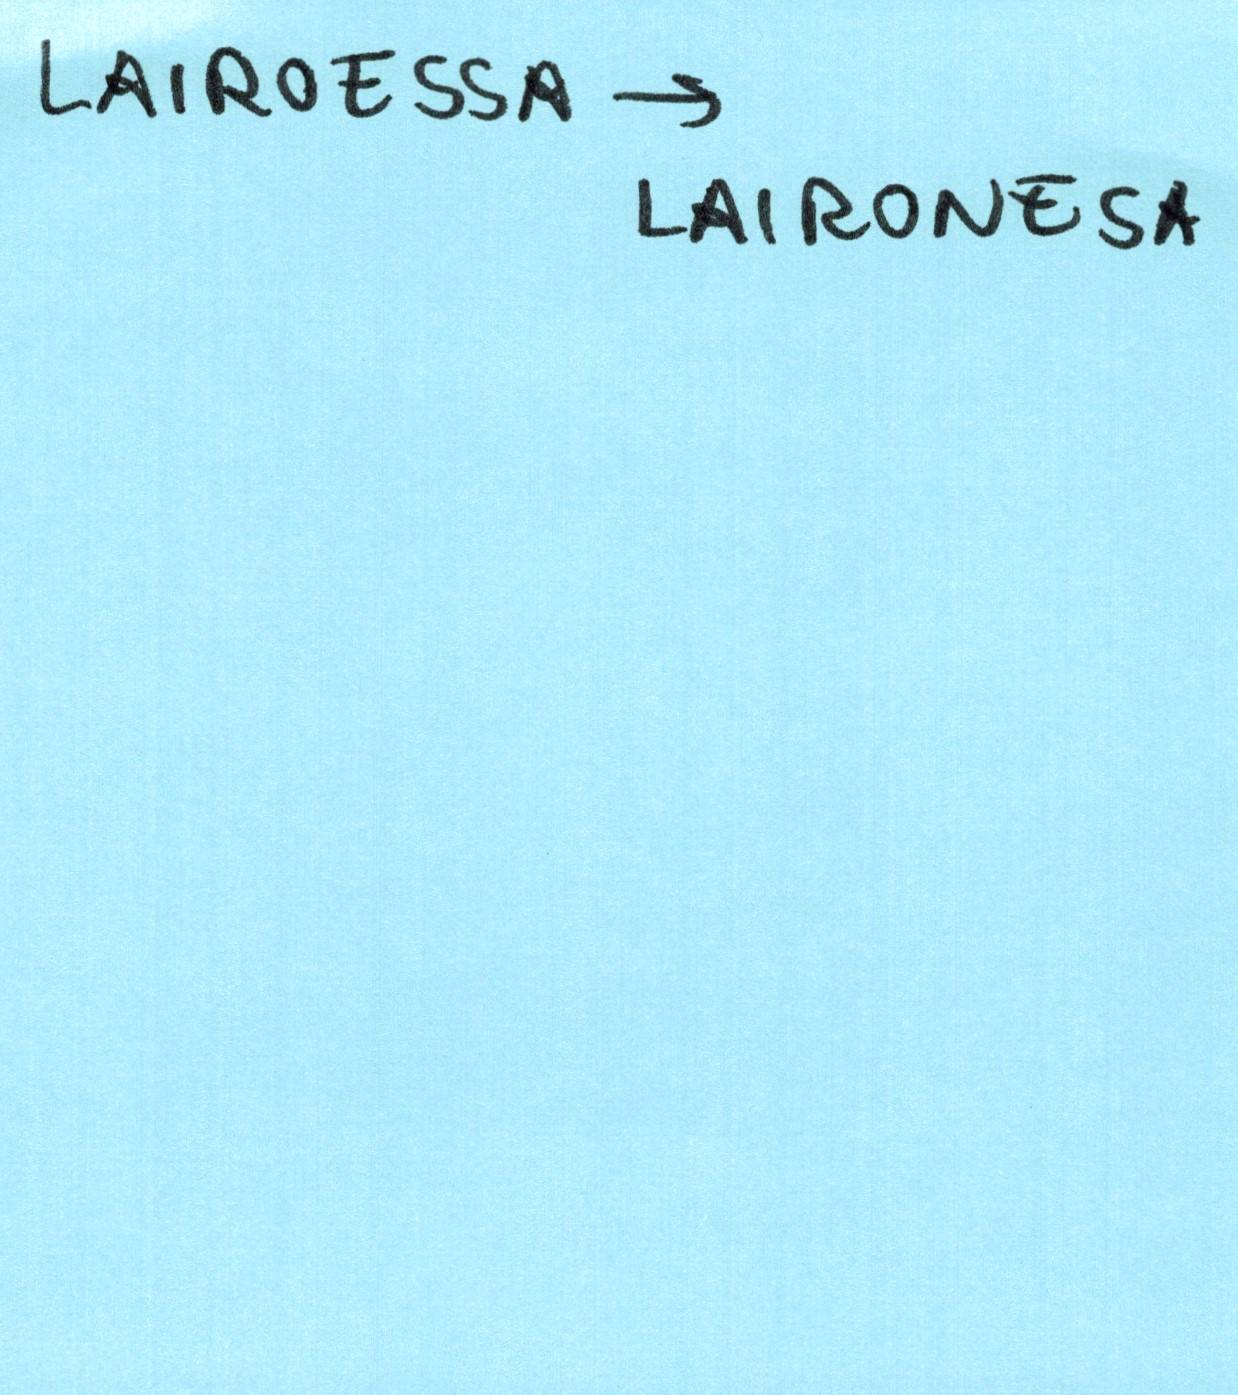 LAIROESSA →
LAIRONESA